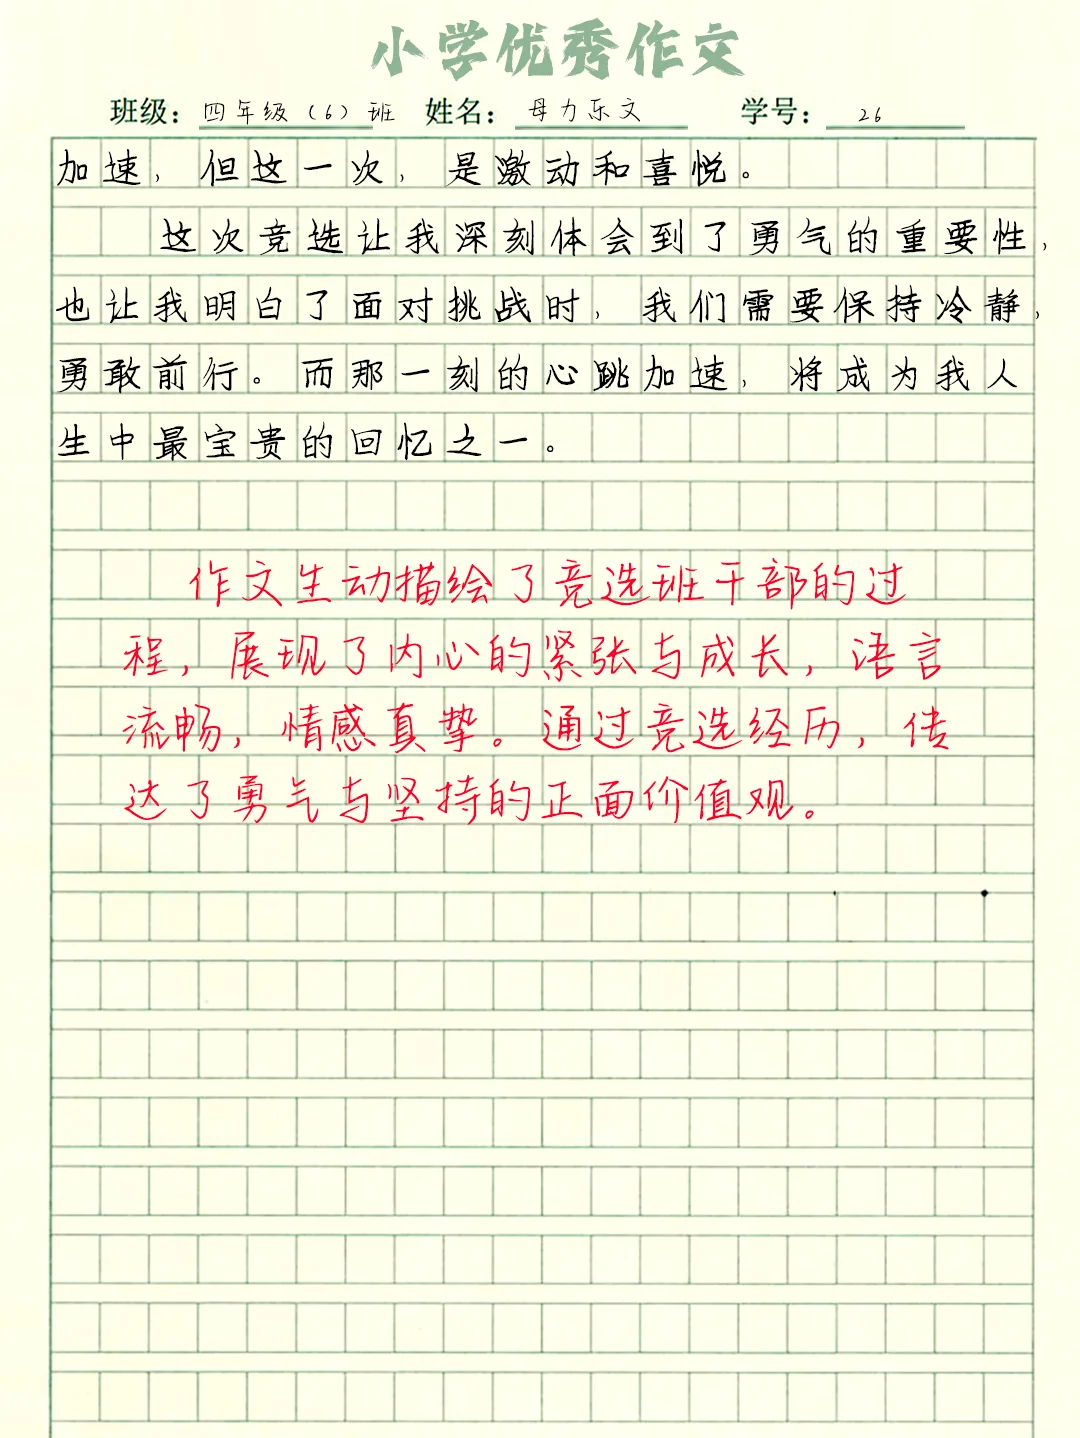 小学优秀作文
班级：四年级（6）班 姓名：母力乐文 学号：26
加速，但这一次，是激动和喜悦。
这次竞选让我深刻体会到了勇气的重要性，
也让我明白了面对挑战时，我们需要保持冷静，
勇敢前行。而那一刻的心跳加速，将成为我人
生中最宝贵的回忆之一。
作文生动描绘了竞选班干部的过
程，展现了内心的紧张与成长，语言
流畅，情感真挚。通过竞选经历，传
达了勇气与坚持的正面价值观。